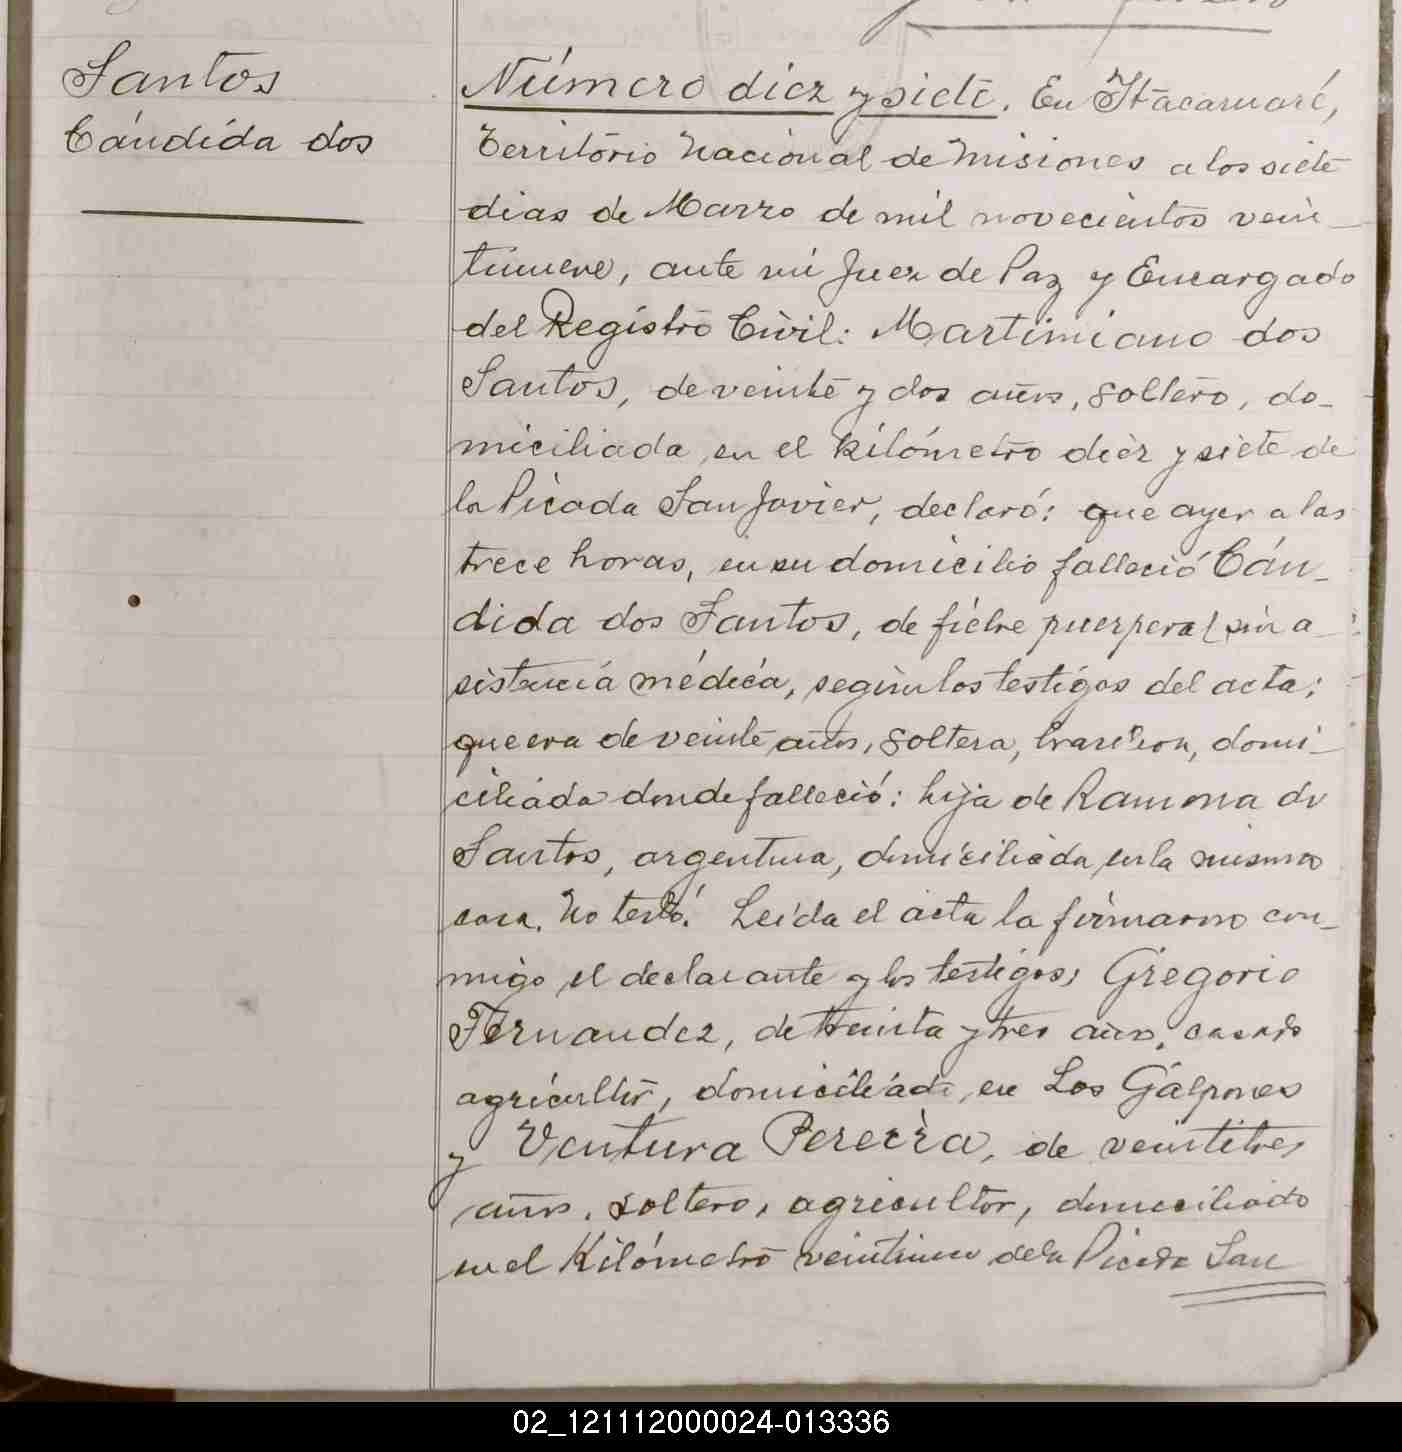 Santos
Cándida dos
Número diez y siete. En Itacaruaré,
Territorio Nacional de Misiones a los siete
dias de Marzo de mil novecientos vein-
tinueve, ante mi Juez de Paz y Encargado
del Registro Civil: Martimiano dos
Santos, de veinte y dos años, soltero, do-
miciliada en el kilómetro diez y siete de
la Picada San Javier, declaró: que ayer a las
trece horas, en su domicilio falleció Cán-
dida dos Santos, de fiebre puerperal sin a-
sistencia médica, según los testigos del acta;
que era de veinte años, soltera, domi-
ciliada donde falleció: hija de Ramona do
Santos, argentina, domiciliada en la misma
casa. No testó. Leida el acta la firmaron con-
migo el declarante y los testigos; Gregorio
Fernandez, de treinta y tres años, casado
agricultor, domiciliado en Los Galpones
y Ventura Pereira, de veintitres
años, soltero, agricultor, domiciliado
en el Kilómetro de la Picada San
02_121112000024-013336